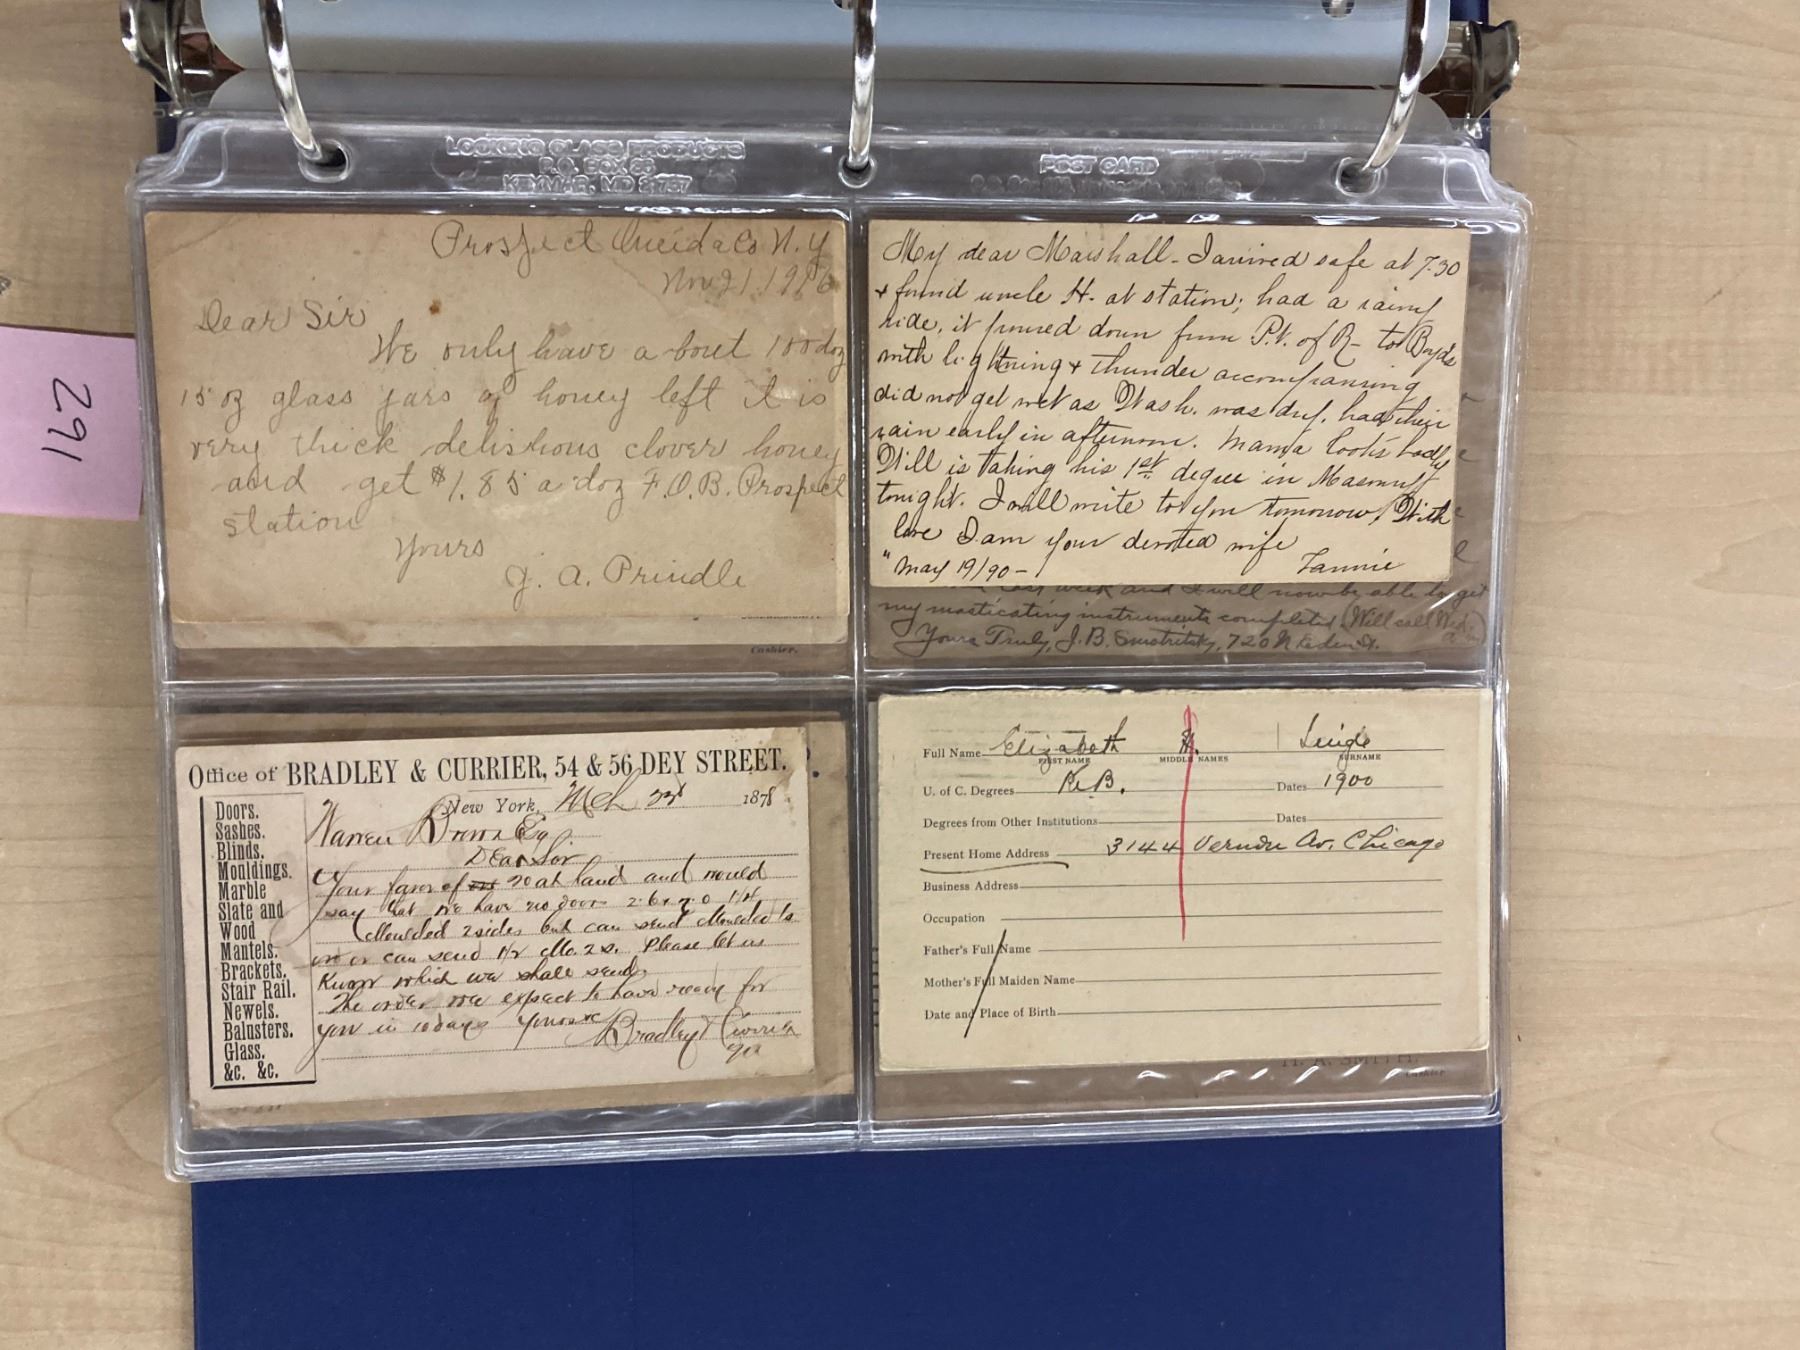 LOOKING GLASS PRODUCTS
P.O. BOX
KEYMAR, MD
POST CARD
291
Prospect Oneida Co N.Y
Nov 21 1916
Dear Sir
We only have a bout 100 doz
15 oz glass jars of honey left it is
very thick delishous clover honey
and get $1.85 a doz F.O.B. Prospect
station
Yours
J. A. Prindle
Cashier.
My dear Marshall - I arrived safe at 7.30
& found uncle H. at station; had a rainy
ride, it poured down from P.t. of R- to Boyds
with lightning & thunder accompaning
did not get wet as Wash. was dry, had their
rain early in afternoon. Mama looks badly
Will is taking his 1st degree in Masonry
tonight. I will write to you tomorrow, With
love I am your devoted wife
"May 19/90- Fannie
last week and I will now be able to get
my masticating instruments completed (Will call Wed.
Yours Truly, J.B. 720 N Eden St.
Office of BRADLEY & CURRIER, 54 & 56 DEY STREET.
New York, Mch 23d 1878
Doors.
Sashes.
Blinds.
Mouldings.
Marble
Slate and
Wood
Mantels.
Brackets.
Stair Rail.
Newels.
Balusters.
Glass.
&c. &c.
Warren Brown Esq
Dear Sir
Your favor of 20 at hand and would
say that we have no doors 2.6 x 7.0 1 1/4
Moulded 2 sides but can send Moulded 1s
or can send 1 1/2 Mo. 2s. Please let us
Know which we shall send.
The order we expect to have ready for
you in 10 days Yours &c Bradley & Currier
Full Name Elizabeth H.
FIRST NAME MIDDLE NAMES SURNAME
U. of C. Degrees B. Dates 1900
Degrees from Other Institutions Dates
Present Home Address 3144 Vernon Av. Chicago
Business Address
Occupation
Father's Full Name
Mother's Full Maiden Name
Date and Place of Birth
H. A. SMITH.
Cashier